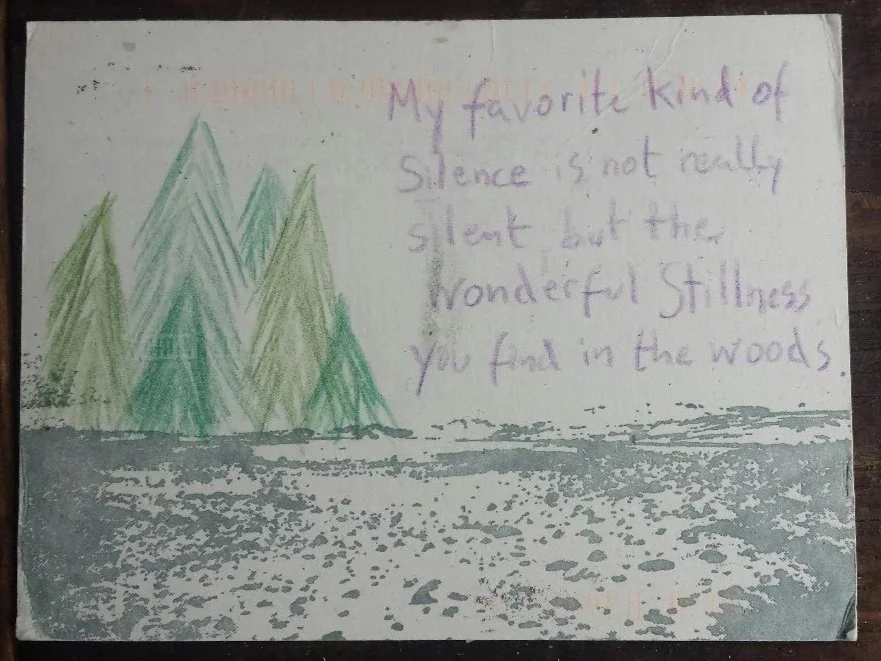 My favorite kind of
Silence is not really
silent but the
wonderful Stillness
you find in the woods.